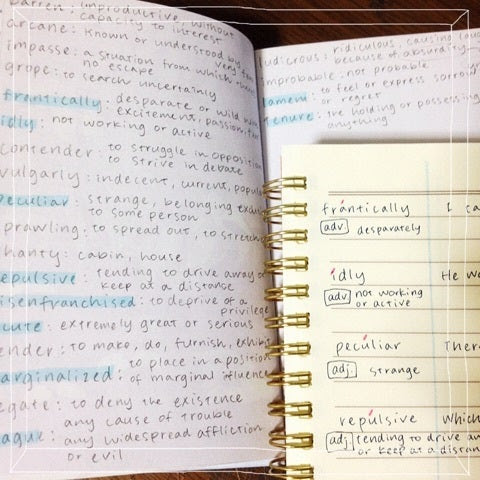 barren: improductive, without
capacity to interest
arcane: known or understood by
very few
impasse: a situation from which
no escape
grope: to search uncertainly
frantically: desparate or wild
excitement, passion,
idly: not working or active
contender: to struggle in opposition
to strive in debate
vulgarly: indecent, current,
peculiar: strange, belonging
to some person
prawling: to spread out, to stretch
hanty: cabin, house
epulsive: tending to drive away or
keep at a distance
isenfranchised: to deprive of a
privilege
cute: extremely great or serious
ender: to make, do, furnish, exhibit
arginalized: to place in a position
of marginal influence
egate: to deny the existence
ague: any cause of trouble
any widespread affliction
or evil
ludicrous: ridiculous, causing
because of absurdity
improbable: not probable
lament: to feel or express sorrow
or regret
tenure: the holding or possessing
anything
frántically I
adv desparately
ídly He
adv not working
or active
pecúliar
adj. strange
repúlsive which
adj tending to drive
or keep at a